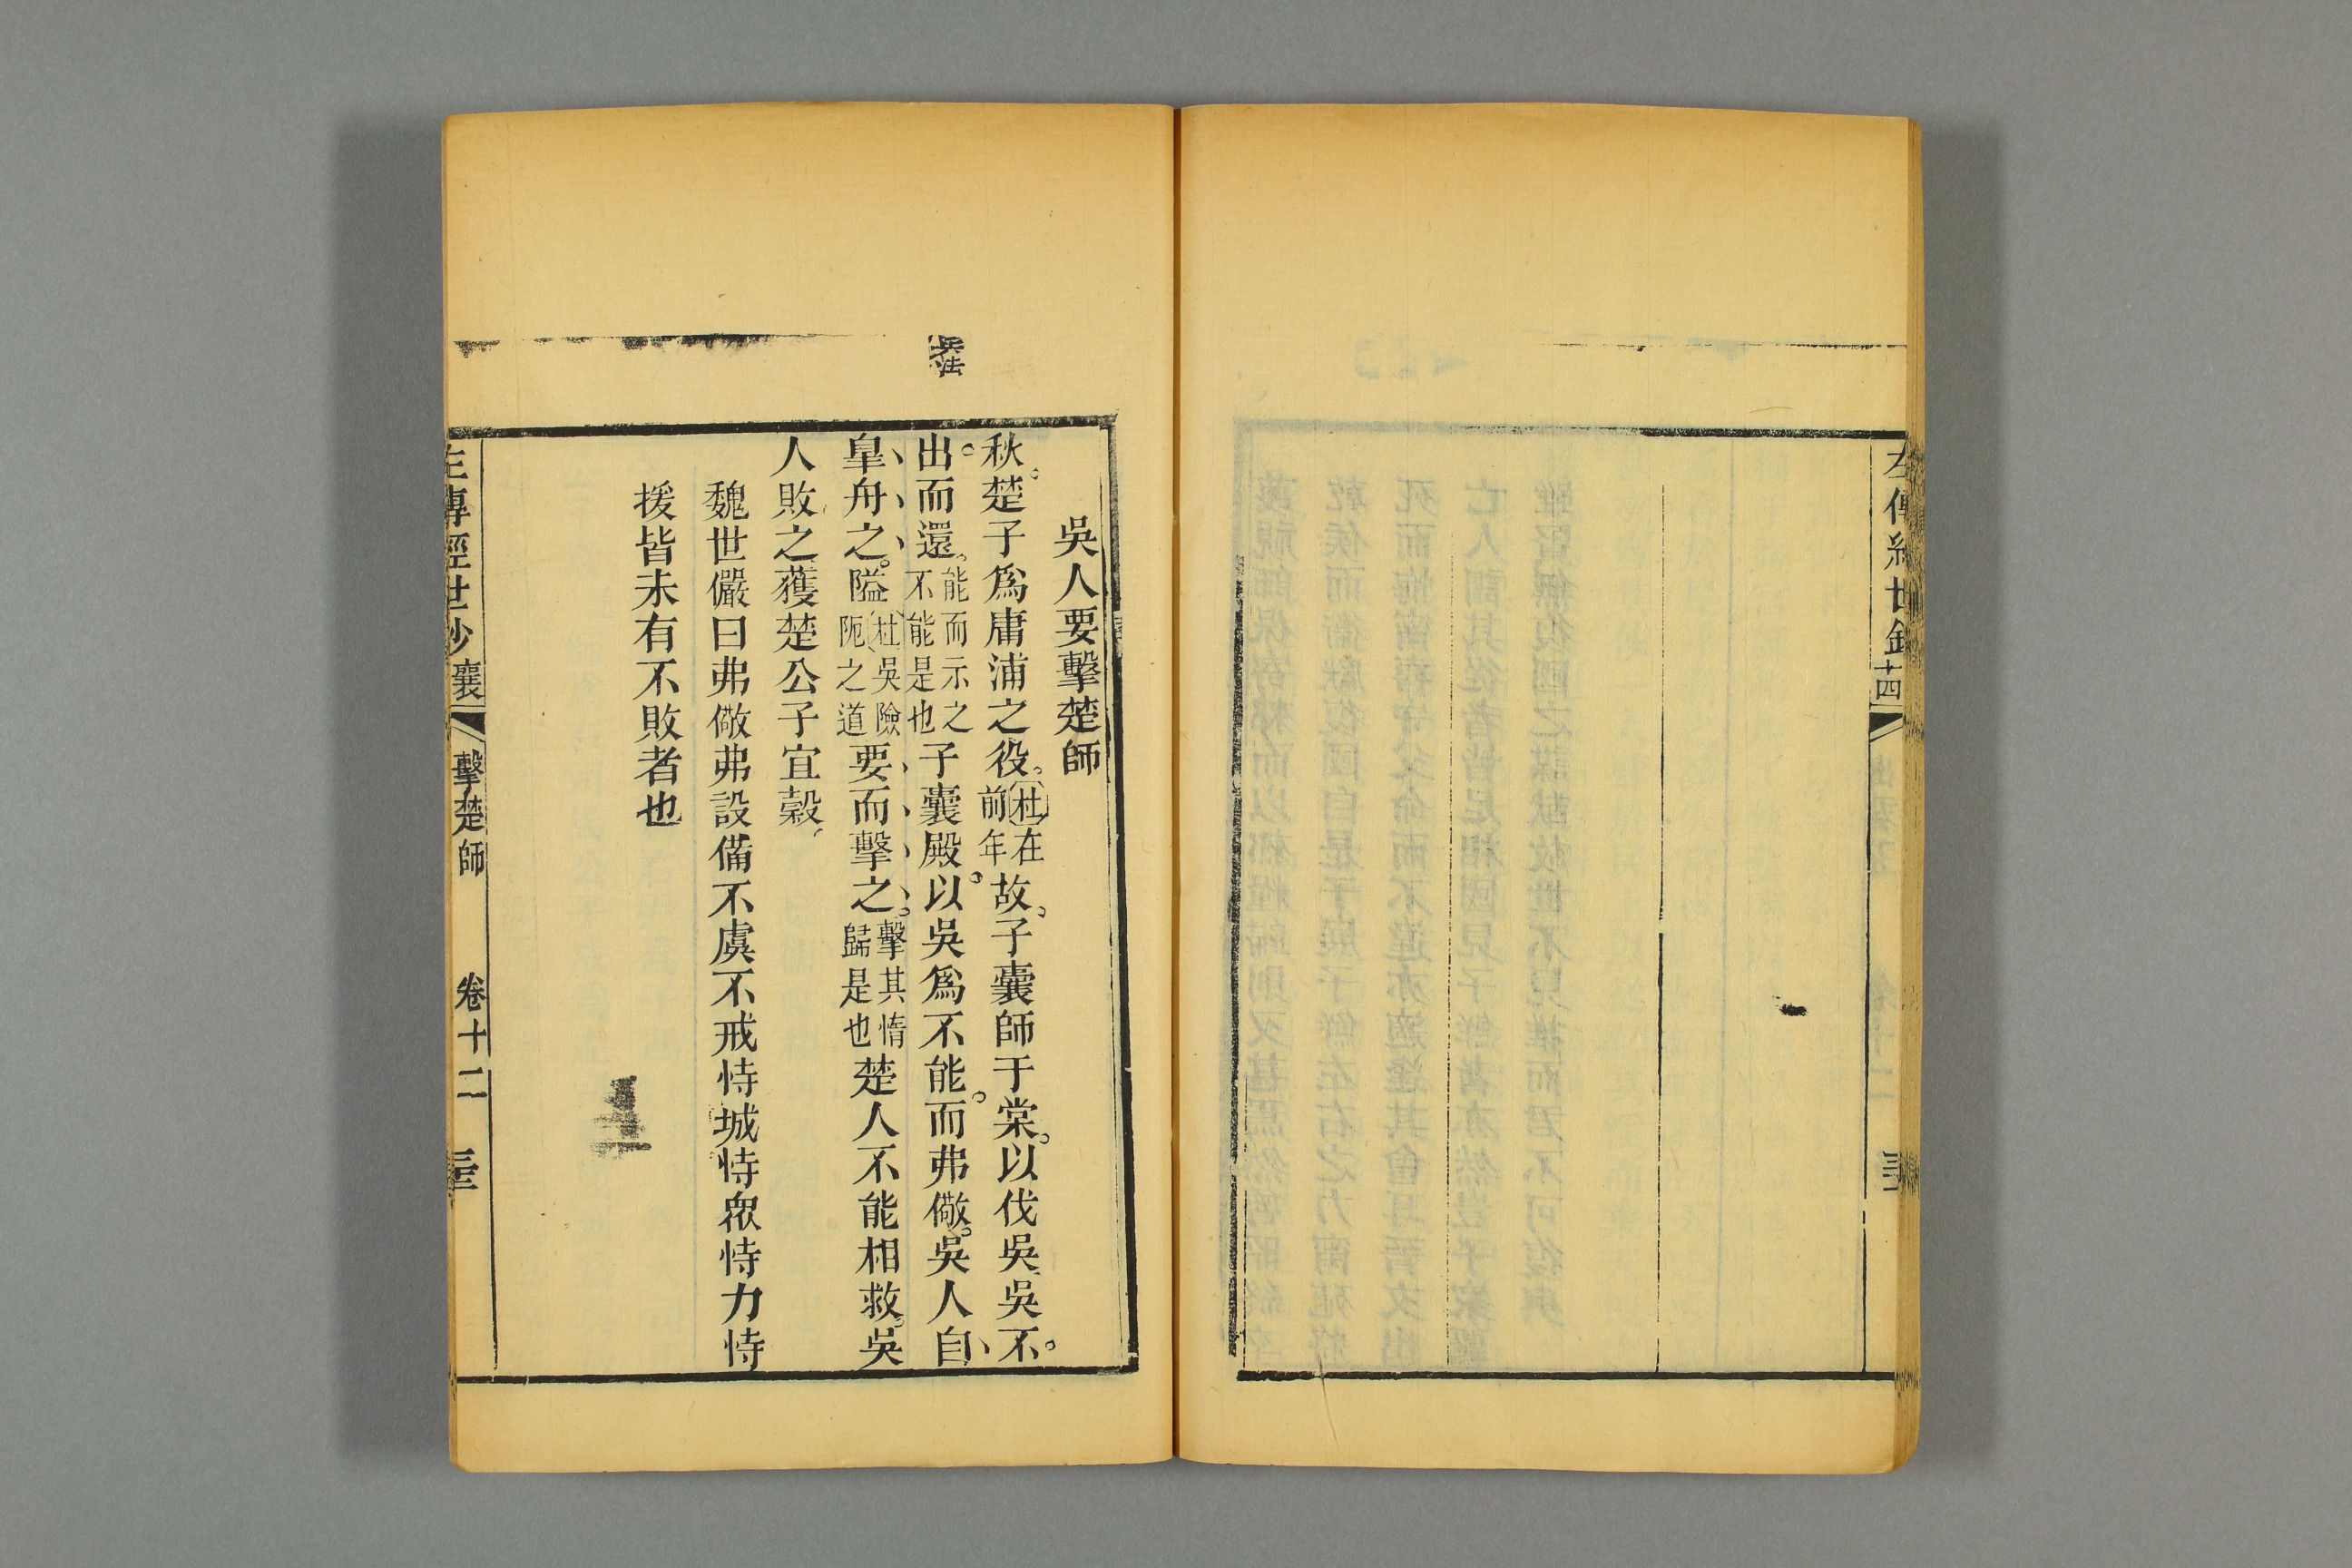 左傳經世鈔
十四
兵法
吳人要擊楚師
秋楚子爲庸浦之役。杜在前年故。子囊師于棠。以伐吳吳不。
出而還。能而示之不能是也子囊殿。以吳爲不能。而弗儆。吳人自
臯舟之。隘杜吳險阨之道要而擊之。擊其惰歸是也楚人不能相救。吳
人敗之獲楚公子宜穀
魏世儼曰弗儆弗設備不虞不戒恃城恃眾恃力恃
援皆未有不敗者也
左傳經世鈔 襄
擊楚師
卷十二